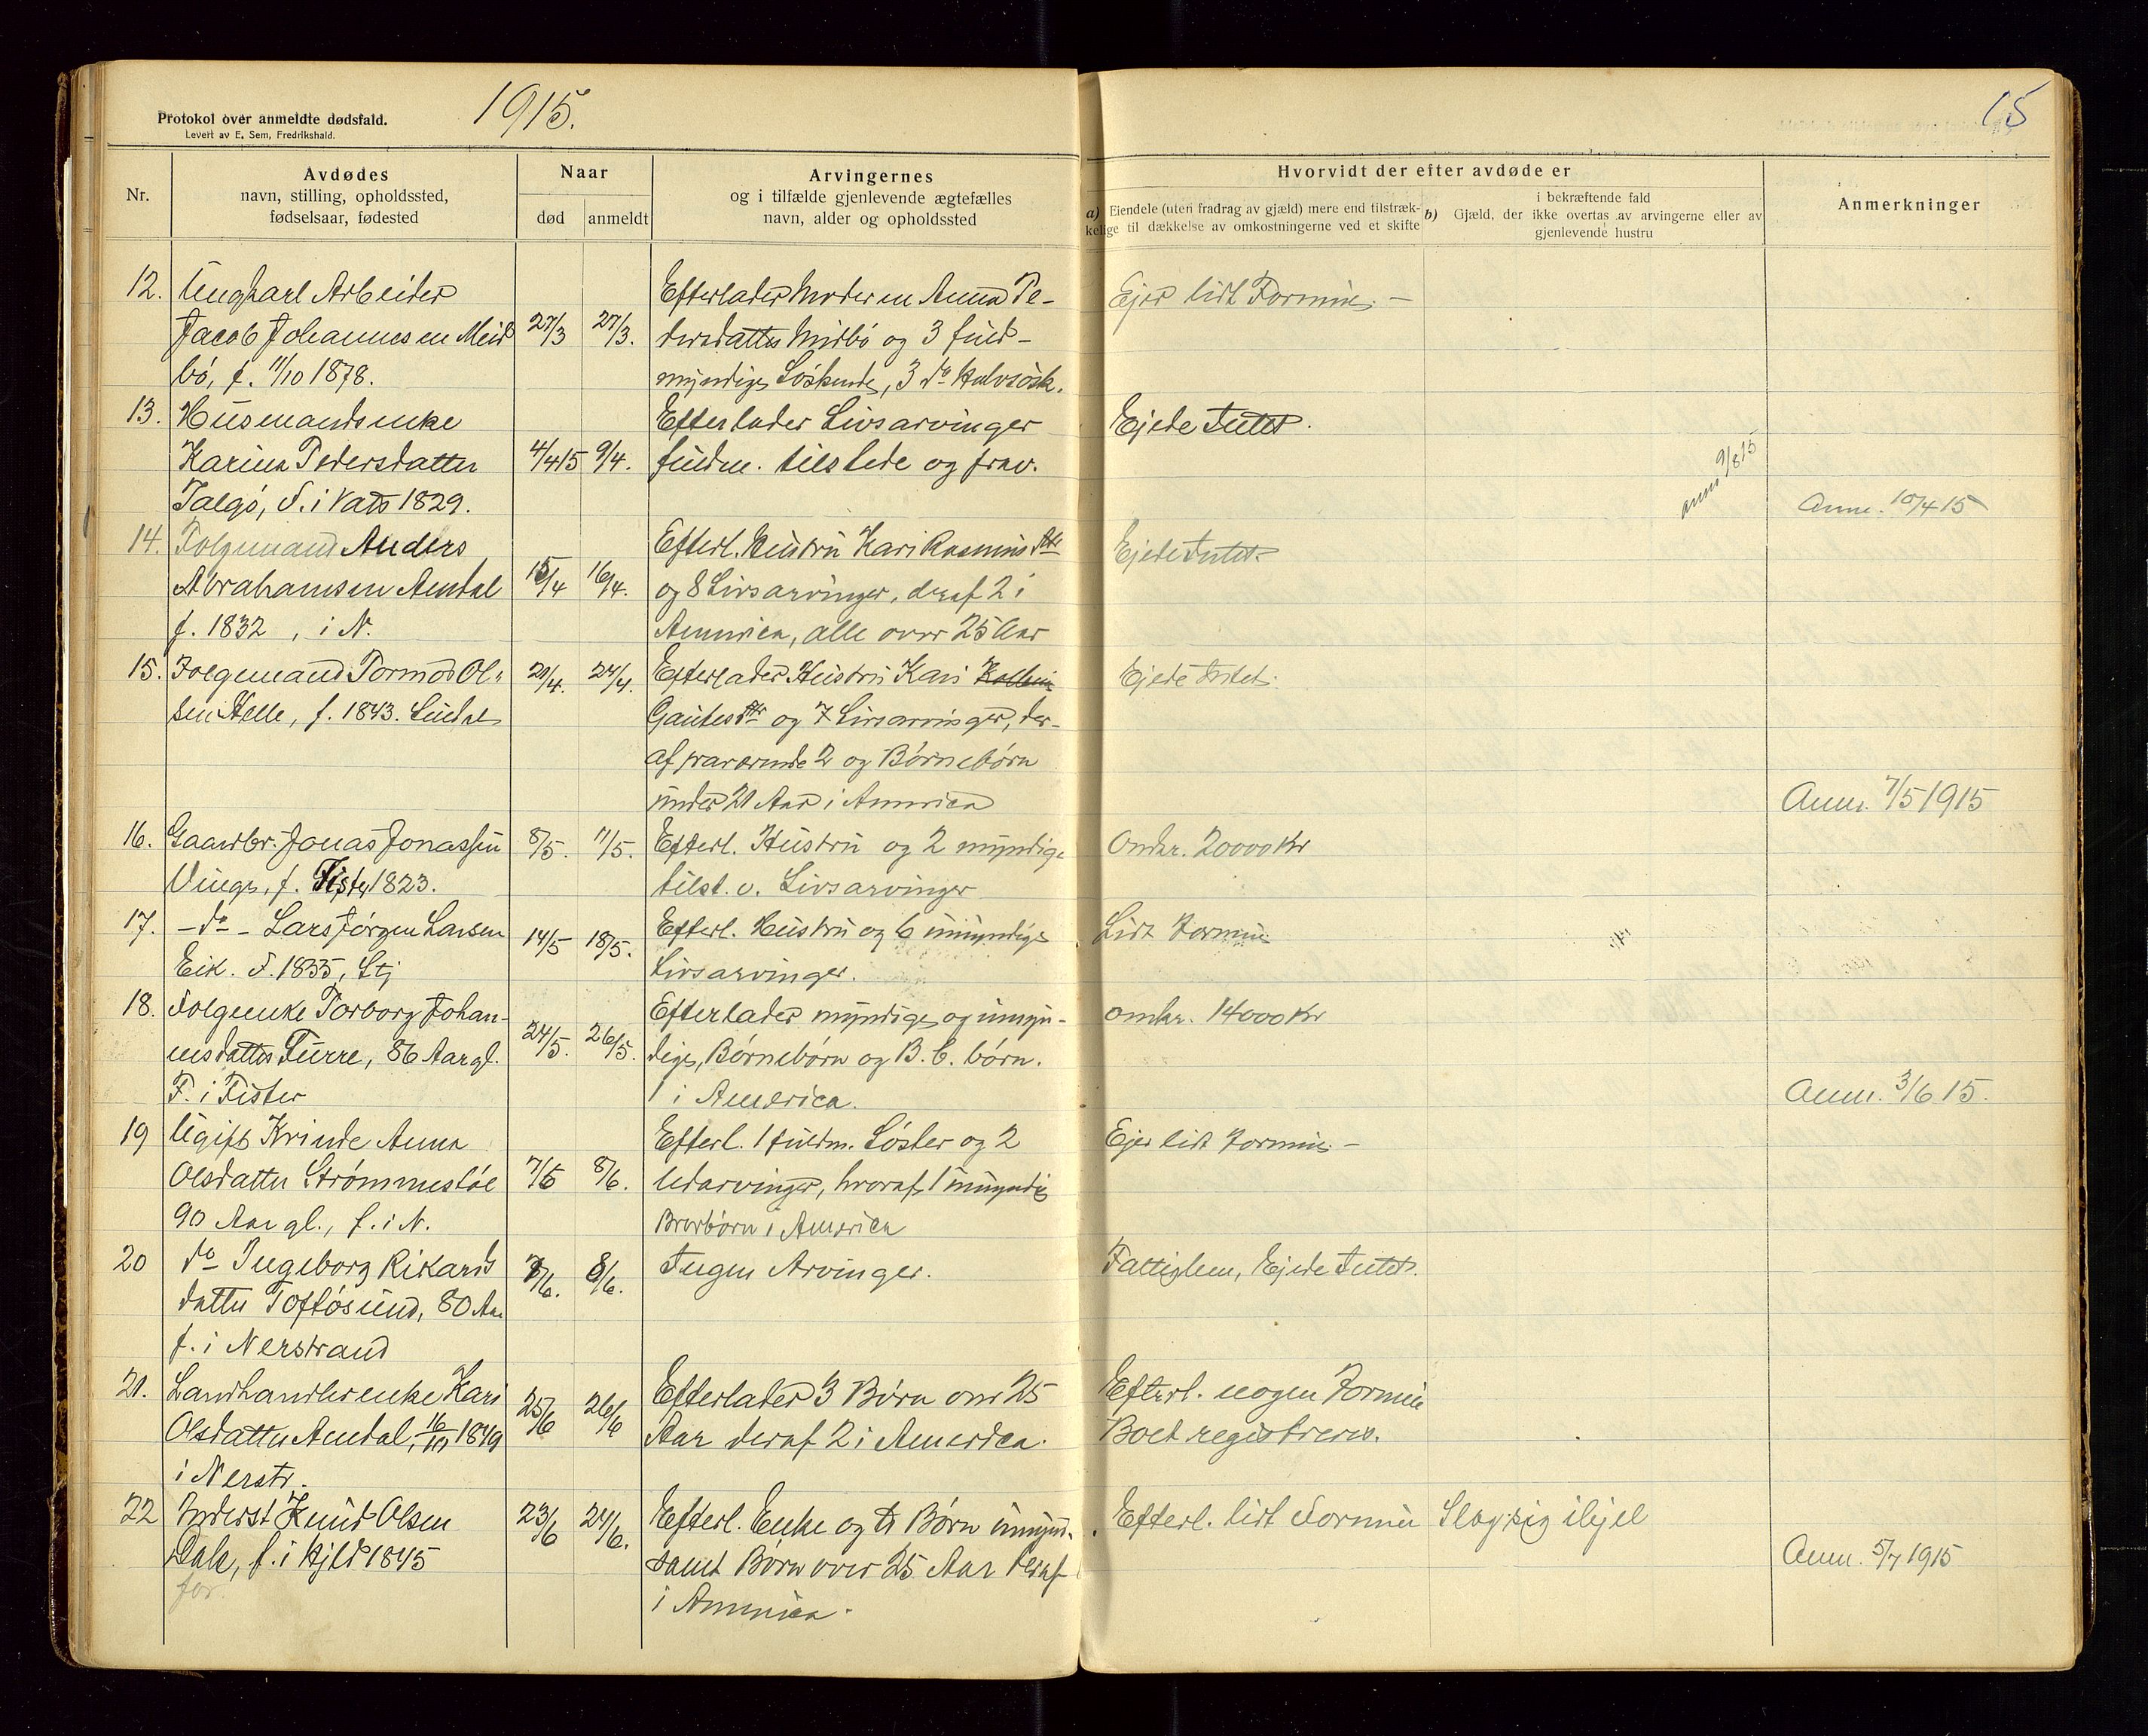 Protokol over anmeldte dødsfald.
Levert av E. Sem, Fredrikshald.
1915.
15
Nr.
Avdødes
navn, stilling, opholdssted,
fødselsaar, fødested
Naar
død
anmeldt
Arvingernes
og i tilfælde gjenlevende ægtefælles
navn, alder og opholdssted
Hvorvidt der efter avdøde er
a) Eiendele (uten fradrag av gjæld) mere end tilstræk-
kelige til dækkelse av omkostningerne ved et skifte
i bekræftende fald
b) Gjæld, der ikke overtas av arvingerne eller av
gjenlevende hustru
Anmerkninger
12. Ungkarl Arbeider
Jacob Johannesen Meid
bö, f. 11/10 1878.
27/3 27/3.
Efterlader Moderen Anna Pe-
dersdatter Midbö og 3 fuld-
myndige Söskende, 3 do Halvsösk.
Ejer lidt Formue. -
13. Husmandsenke
Karina Pedersdatter
Talgö, F. i Vats 1829.
4/4 15 9/4.
Efterlader Livsarvinger
fuldm. tilstede og frav.
Ejede Intet.
anm 9/8 15
Anm. 10/4 15
14. Folgemand Anders
Abrahamsen Amdal
f. 1832, i N.
15/4 16/4.
Efterl. Hustru Kari Rasmusdtr
og 8 Livsarvinger, deraf 2 i
America, alle over 25 Aar
Ejede Intet.
15. Folgemand Tormod Ol-
sen Helle, f. 1843.
21/4. 24/4.
Efterlader Hustru Kari
Gautesdtr og 7 Livsarvinger, der-
af fraværende 2 og Børnebørn
under 21 Aar i America
Ejede Intet.
Anm. 7/5 1915
16. Gaardbr. Jonas Jonassen
Vinge, f. Fister 1823.
8/5. 11/5.
Efterl. Hustru og 2 myndige
tilst. v. Livsarvinger
Omkr. 20000 Kr
17. - do - Lars Jörgen Larsen
Eik. F. 1835,
14/5 18/5.
Efterl. Hustru og 6 umyndige
Livsarvinger.
Lidt Formue
18. Folgeenke Torborg Johan-
nesdatter Furre, 86 Aar gl.
F. i Fister
24/5. 26/5.
Efterlader myndige og umyn-
dige, Börnebörn og B.b. börn.
1 i America.
omkr. 14000 Kr
Anm. 3/6 15.
19 Ugift Kvinde Anna
Olsdatter Strømmestöe
90 Aar gl., f. i N.
7/6 8/6.
Efterl. 1 fuldm. Söster og 2
Udarvinger, hvoraf 1 umyndig
Brorbörn i America
Ejer lidt Formue. -
20 do Ingeborg Rikards
datter Toftösund, 80 Aar
f. i Nerstrand
7/6. 8/6.
Ingen Arvinger.
Fattiglem, Ejede Intet.
21. Landhandlerenke Kari
Olsdatter Amdal, 16/10 1849
i Nerstr.
25/6 26/6
Efterlader 3 Börn over 25
Aar deraf 2 i America.
Efterl. nogen Formue
Boet registreres.
22 Inderst Knud Olsen
Dale, f. i Hjeld 1845
for
23/6 24/6.
Efterl. Enke og Börn umynd.
samt Börn over 25 Aar deraf
i America.
Efterl. lidt Formue
Slog sig ihjel
Anm. 5/7 1915